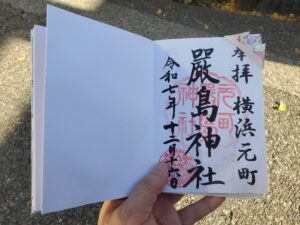 奉拝 横浜元町
嚴島神社
令和七年十二月十六日